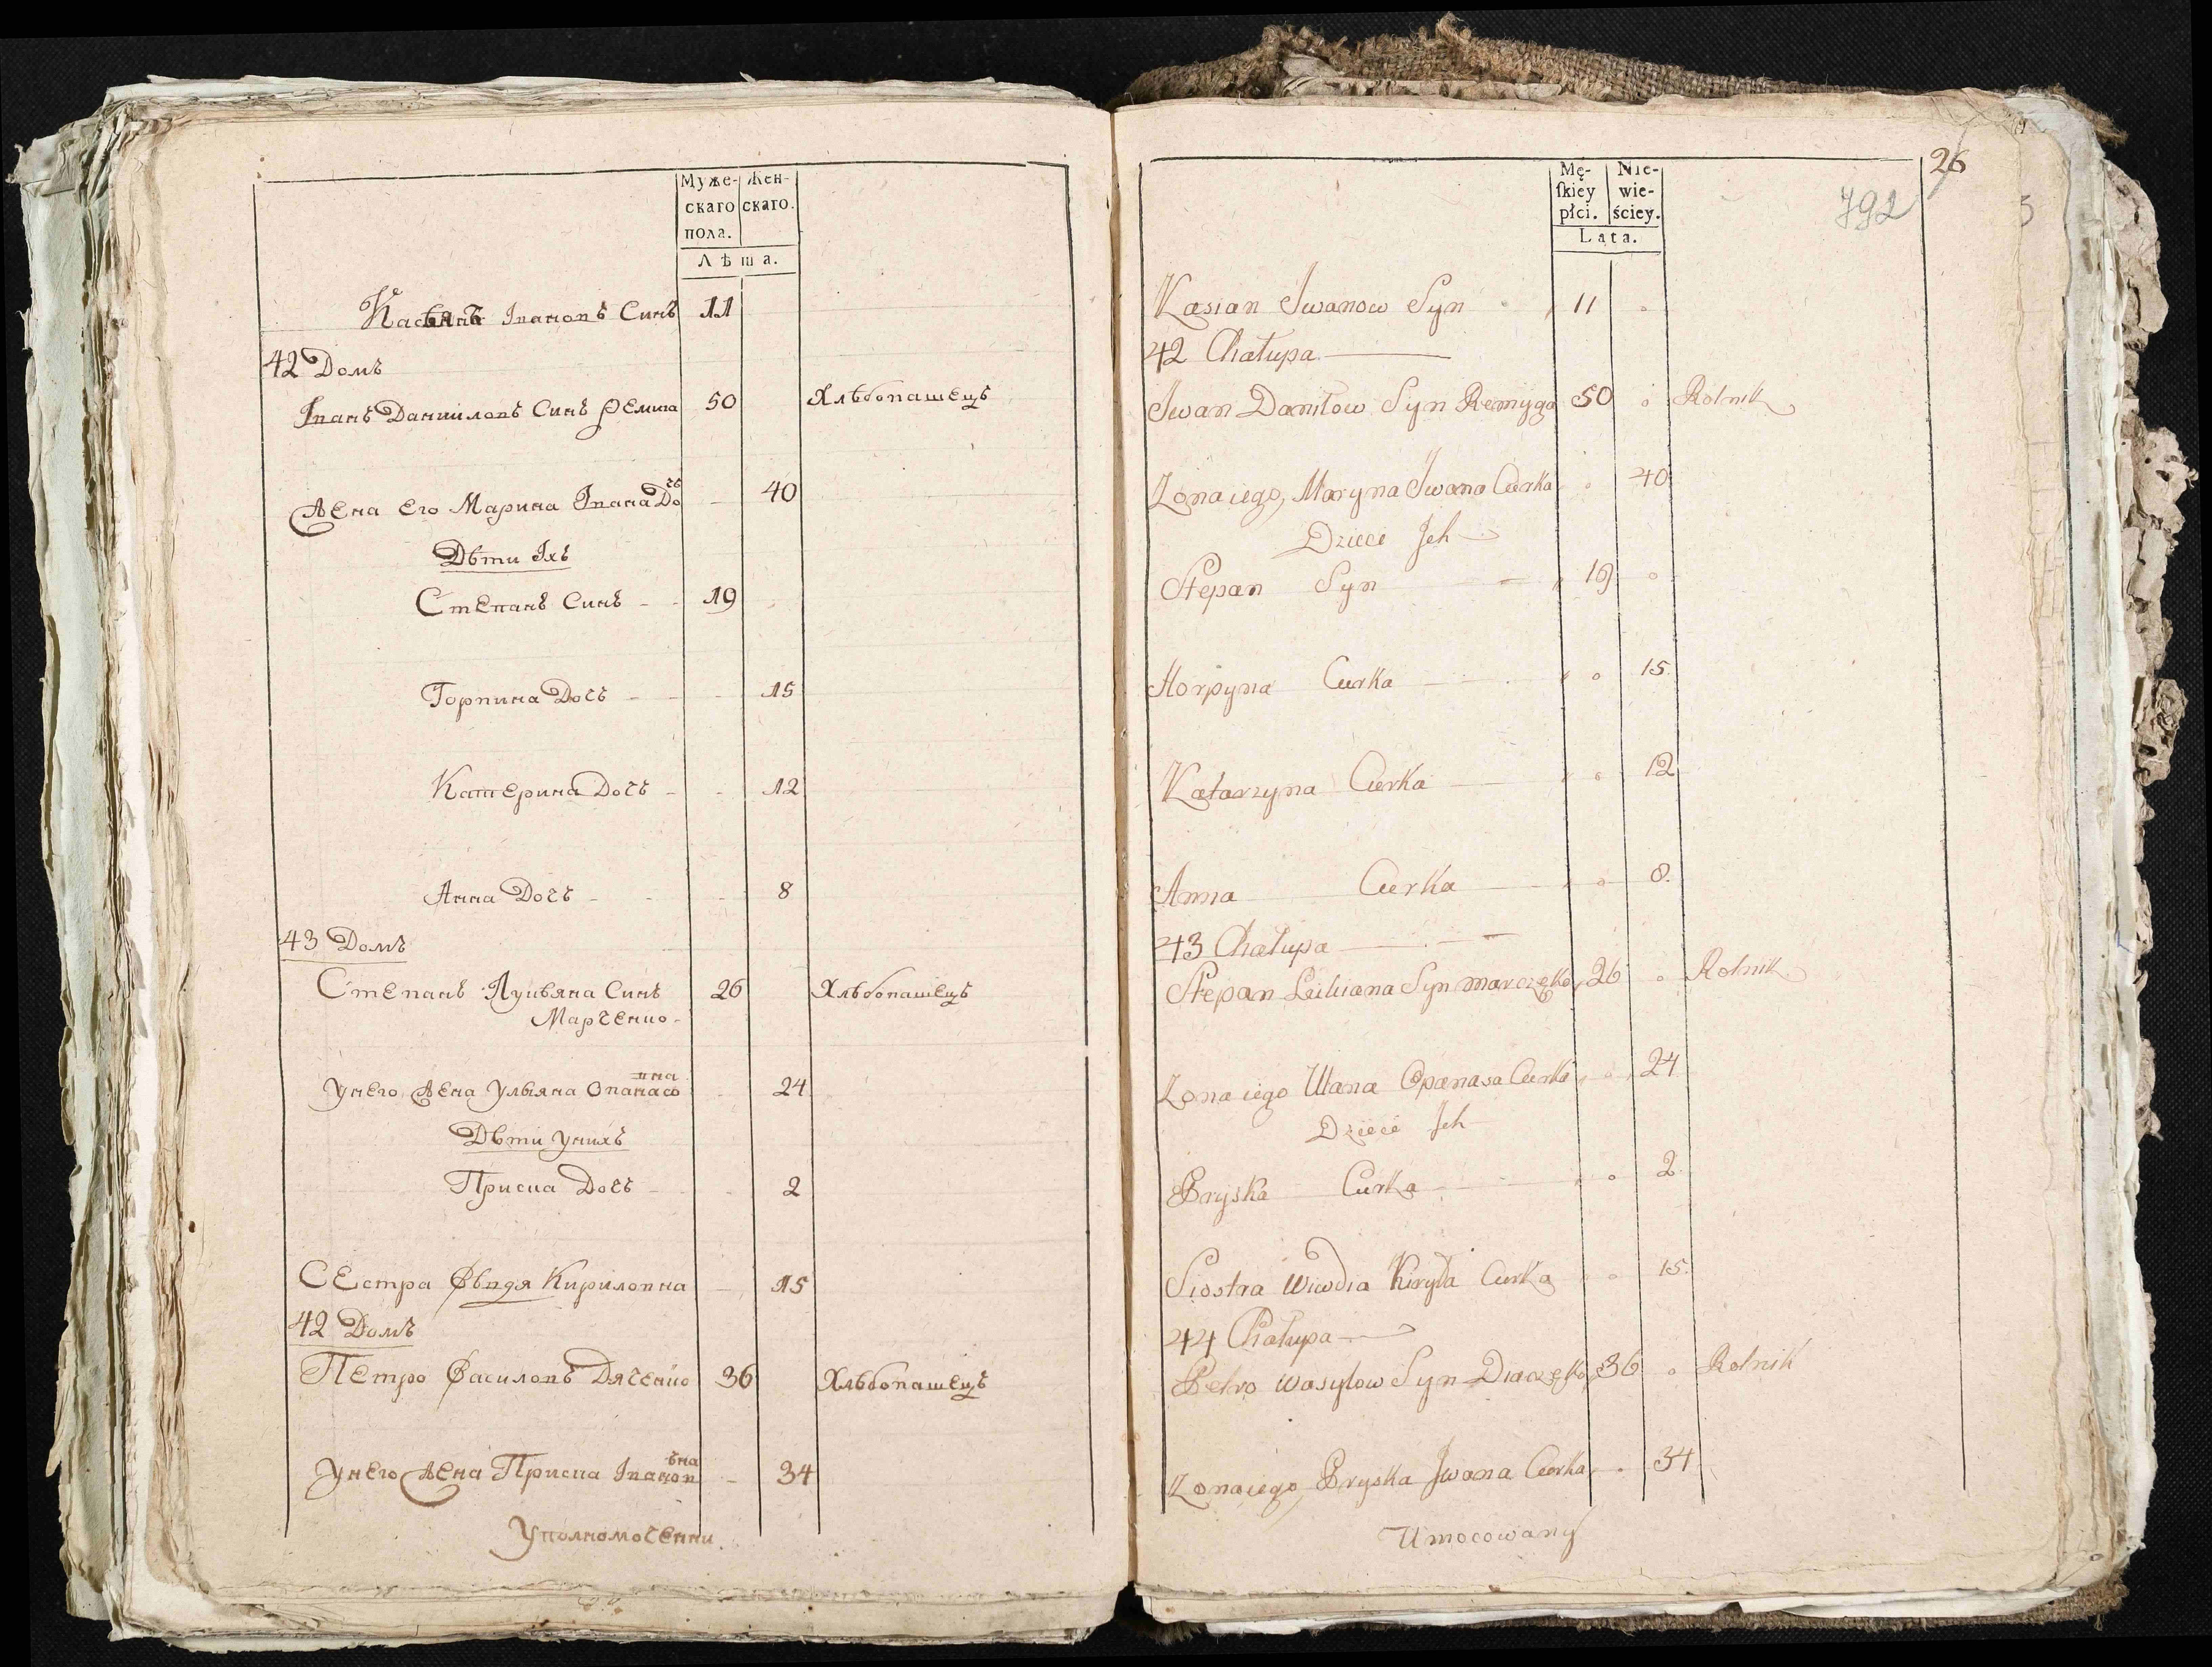 Муже- Жен-
скаго скаго.
пола.
Лѣта.
Касянъ Іванов Синъ 11
42 Домъ
Іванъ Даниловъ Синъ Ремига 50 Хлѣбопашецъ
Жена Его Марина Івана Дочь 40
Дѣти Іхъ
Степанъ Синъ 19
Горпина Дочъ 15
Катерина Дочъ 12
Анна Дочъ 8
43 Домъ
Степанъ Лукяна Синъ 26 Хлѣбопашецъ
Марченко
У него Жена Уляна Опанасовна 24
Дѣти у нихъ
Приска Дочъ 2
Сестра Ѳвидя Кириловна 15
42 Домъ
Петро Василовъ Дяченко 36 Хлѣбопашецъ
У него Жена Приска Івановъна 34
Уполномоченни
26
792
Mę- Nie-
skiey wie-
płci. ściey.
Lata.
Kasian Jwanow Syn 11
42 Chałupa
Jwan Daniłow Syn Remyga 50 Rolnik
Zona iego, Maryna Jwana Curka 40
Dzieci Jch
Stepan Syn 19
Horpyna Curka 15
Katarzyna Curka 12
Anna Curka 8.
43 Chałupa
Stepan Lukiana Syn Marczęko 26 Rolnik
Zona iego Ulana Opanasa Curka 24
Dzieci Jch
Pryska Curka 2
Siostra Wiwdia Kiryła Curka 15
44 Chałupa
Petro Wasylow Syn Diaczęko 36 Rolnik
Zona iego, Pryska Jwana Curka 34
Umocowany